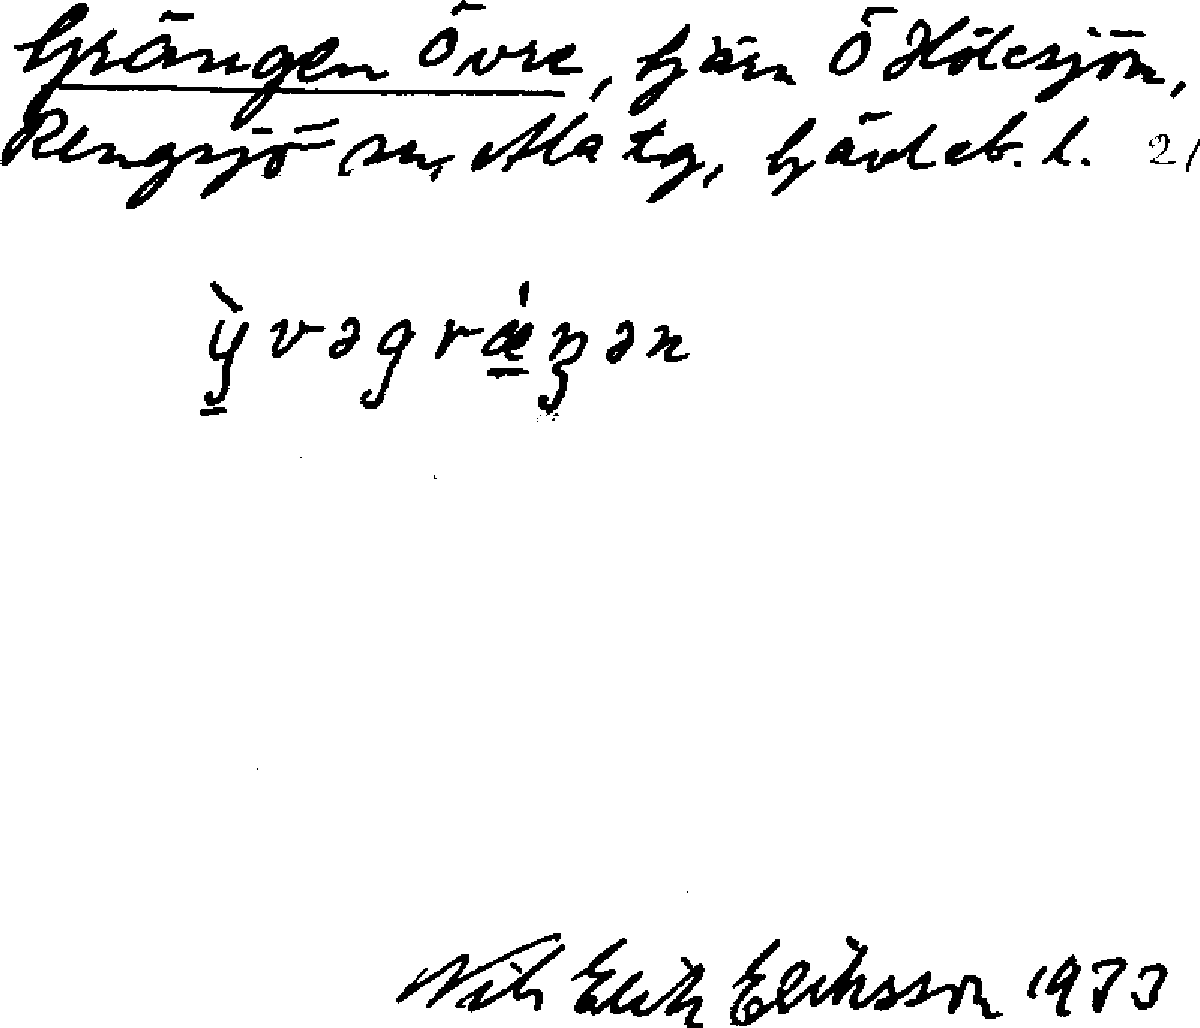 Grängen Övre, tjärn Ö Hölesjön,
Rengsjö sn, Ala tg, Gävleb. l. 21
ỳ̠vəgrǽ̠ŋən
Nils Erik Eriksson 1973